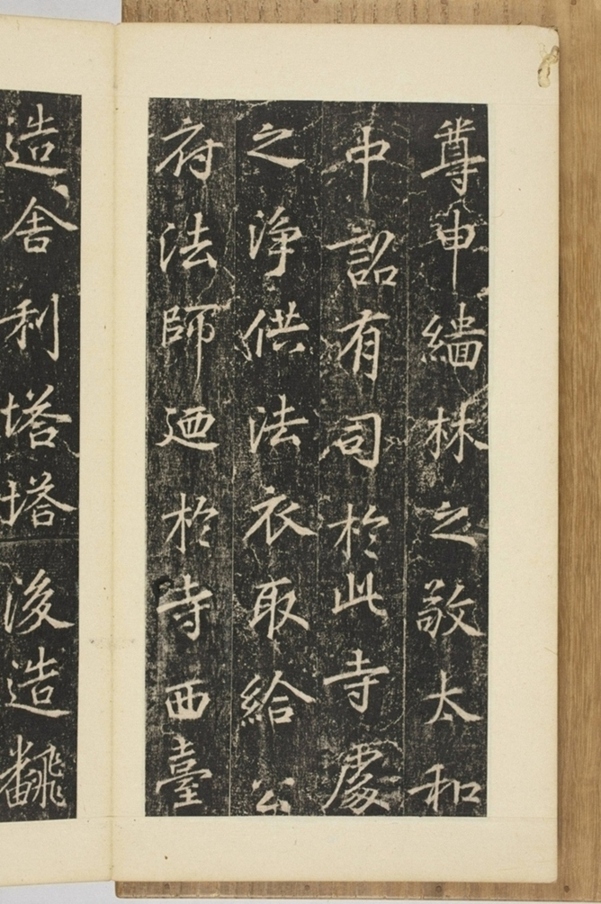 尊申緇林之敬太和
中詔有司於此寺處
之淨供法衣取給公
府法師廼於寺西臺
造舍利塔塔後造翻